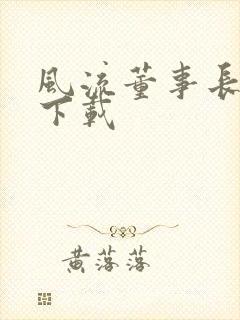 風流董事長
下載
黄落落